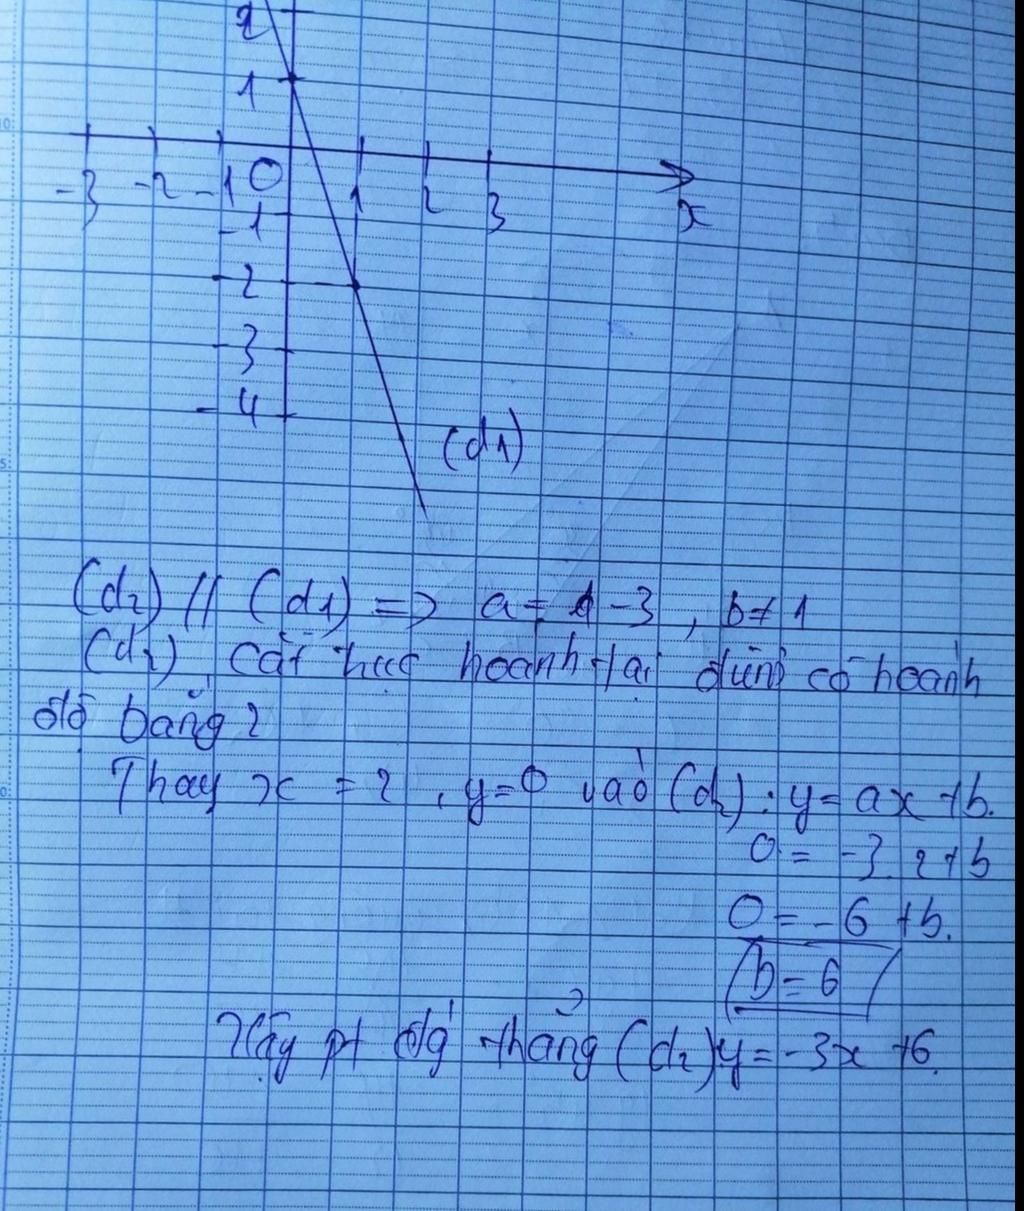 2
1
-3 -2 -1 O 1 2 3 x
-1
-2
-3
-4
(d1)
(d2) // (d1) => a = -3 , b ≠ 1
(d2) cắt trục hoành tại điểm có hoành
độ bằng 2
Thay x = 2 , y = 0 vào (d2) : y = ax + b.
0 = -3. 2 + b
0 = -6 + b.
b = 6
Vậy pt đg thẳng (d2) y = -3x + 6.